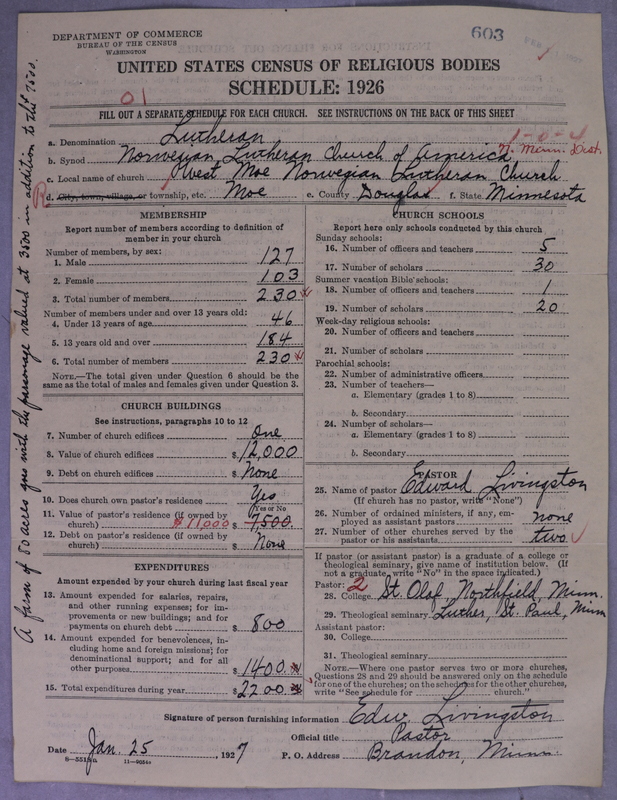 DEPARTMENT OF COMMERCE
BUREAU OF THE CENSUS
WASHINGTON
603
UNITED STATES CENSUS OF RELIGIOUS BODIES
SCHEDULE: 1926
01
FILL OUT A SEPARATE SCHEDULE FOR EACH CHURCH. SEE INSTRUCTIONS ON THE BACK OF THIS SHEET
a. Denomination Lutheran
1-0-4
b. Synod Norwegian Lutheran Church of America N. Minn. Dist.
c. Local name of church West Moe Norwegian Lutheran Church
R d. City, town, village, or township, etc. Moe e. County Douglas f. State Minnesota
MEMBERSHIP
Report number of members according to definition of
member in your church
Number of members, by sex:
1. Male 127
2. Female 103
3. Total number of members 230
Number of members under and over 13 years old:
4. Under 13 years of age 46
5. 13 years old and over 184
6. Total number of members 230
NOTE.—The total given under Question 6 should be the
same as the total of males and females given under Question 3.
CHURCH BUILDINGS
See instructions, paragraphs 10 to 12
7. Number of church edifices One
8. Value of church edifices $12,000
9. Debt on church edifices $ None
10. Does church own pastor's residence Yes
Yes or No
11. Value of pastor's residence (if owned by
church) $11,000 $ 7,500.
12. Debt on pastor's residence (if owned by
church) $ None
EXPENDITURES
Amount expended by your church during last fiscal year
13. Amount expended for salaries, repairs,
and other running expenses; for im-
provements or new buildings; and for
payments on church debt $ 800
14. Amount expended for benevolences, in-
cluding home and foreign missions; for
denominational support; and for all
other purposes $1400.
15. Total expenditures during year $2200.
CHURCH SCHOOLS
Report here only schools conducted by this church
Sunday schools:
16. Number of officers and teachers 5
17. Number of scholars 30
Summer vacation Bible schools:
18. Number of officers and teachers 1
19. Number of scholars 20
Week-day religious schools:
20. Number of officers and teachers
21. Number of scholars
Parochial schools:
22. Number of administrative officers
23. Number of teachers—
a. Elementary (grades 1 to 8)
b. Secondary
24. Number of scholars—
a. Elementary (grades 1 to 8)
b. Secondary
PASTOR
25. Name of pastor Edward Livingston
(If church has no pastor, write "None")
26. Number of ordained ministers, if any, em-
ployed as assistant pastors none
27. Number of other churches served by the
pastor or his assistants two
If pastor (or assistant pastor) is a graduate of a college or
theological seminary, give name of institution below. (If
not a graduate, write "No" in the space indicated.)
Pastor: 2
28. College St. Olaf, Northfield, Minn.
29. Theological seminary Luther, St. Paul, Minn
Assistant pastor:
30. College
31. Theological seminary
NOTE.—Where one pastor serves two or more churches,
Questions 28 and 29 should be answered only on the schedule
for one of the churches; on the schedules for the other churches,
write "See schedule for church."
Signature of person furnishing information Edw. Livingston
Official title Pastor
Date Jan. 25 1927 P. O. Address Brandon, Minn.
11-9054a
A farm of 80 acres goes with the parsonage valued at 3500 in addition to the 7500.